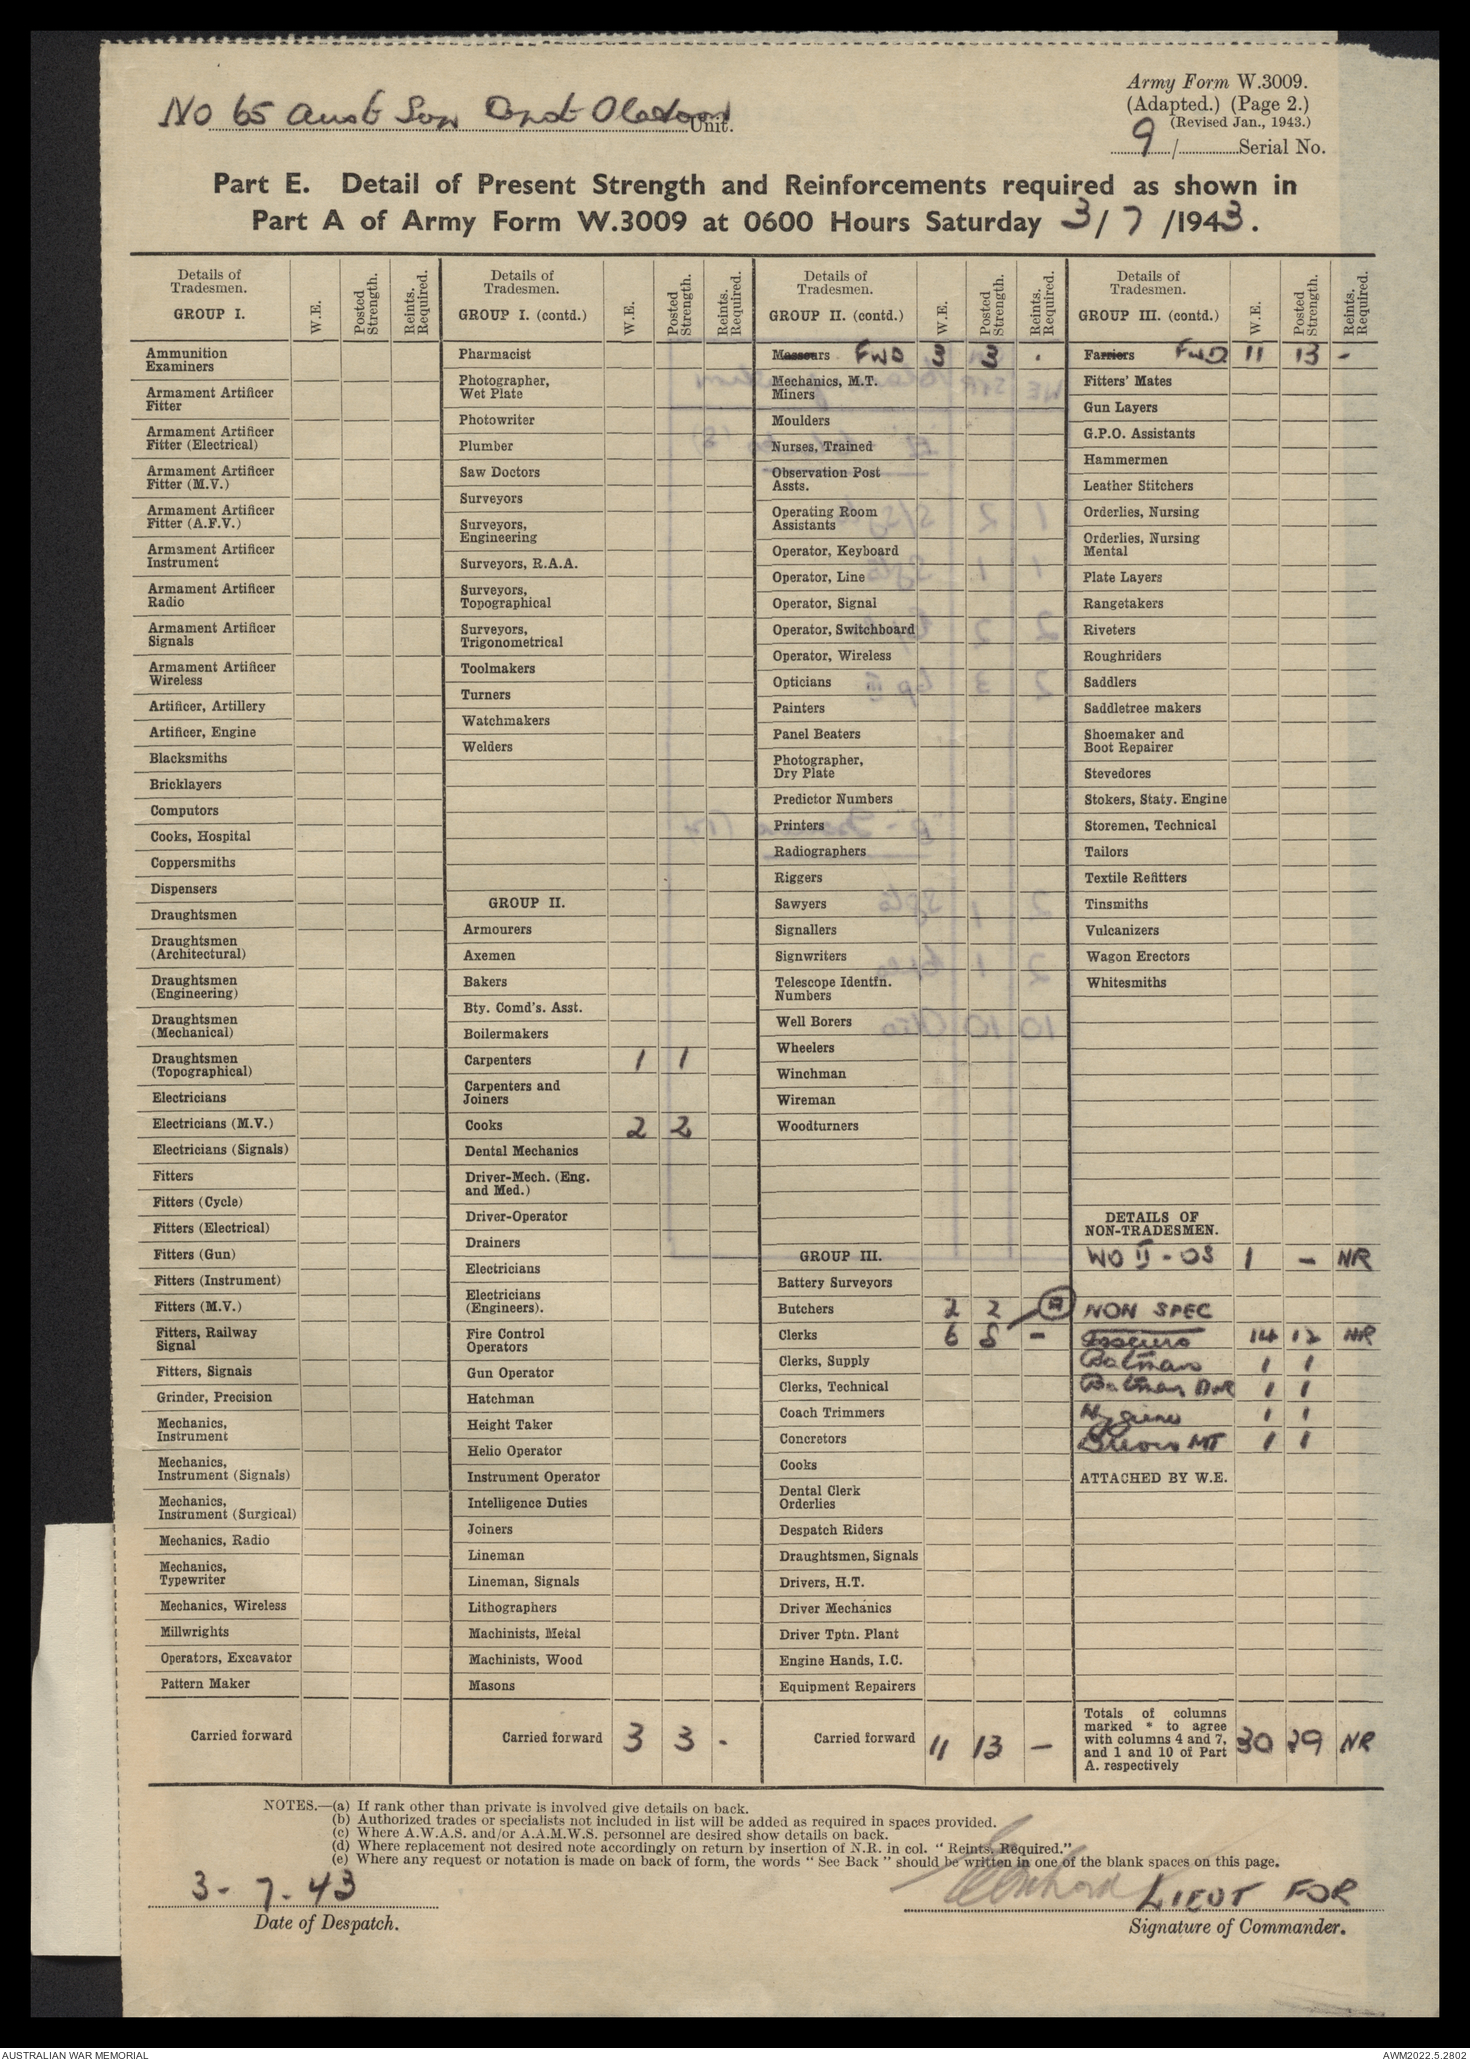 Army Form W.3009.
(Adapted.) (Page 2.)
(Revised Jan., 1943.)
9 / Serial No.
No 65 Aust Sup Depot Unit.
Part E. Detail of Present Strength and Reinforcements required as shown in
Part A of Army Form W.3009 at 0600 Hours Saturday 3/ 7 /1943.
Details of Tradesmen. GROUP I. W.E. Posted Strength. Reints. Required.
Ammunition Examiners
Armament Artificer Fitter
Armament Artificer Fitter (Electrical)
Armament Artificer Fitter (M.V.)
Armament Artificer Fitter (A.F.V.)
Armament Artificer Instrument
Armament Artificer Radio
Armament Artificer Signals
Armament Artificer Wireless
Artificer, Artillery
Artificer, Engine
Blacksmiths
Bricklayers
Computors
Cooks, Hospital
Coppersmiths
Dispensers
Draughtsmen
Draughtsmen (Architectural)
Draughtsmen (Engineering)
Draughtsmen (Mechanical)
Draughtsmen (Topographical)
Electricians
Electricians (M.V.)
Electricians (Signals)
Fitters
Fitters (Cycle)
Fitters (Electrical)
Fitters (Gun)
Fitters (Instrument)
Fitters (M.V.)
Fitters, Railway Signal
Fitters, Signals
Grinder, Precision
Mechanics, Instrument
Mechanics, Instrument (Signals)
Mechanics, Instrument (Surgical)
Mechanics, Radio
Mechanics, Typewriter
Mechanics, Wireless
Millwrights
Operators, Excavator
Pattern Maker
Carried forward
Details of Tradesmen. GROUP I. (contd.) W.E. Posted Strength. Reints. Required.
Pharmacist
Photographer, Wet Plate
Photowriter
Plumber
Saw Doctors
Surveyors
Surveyors, Engineering
Surveyors, R.A.A.
Surveyors, Topographical
Surveyors, Trigonometrical
Toolmakers
Turners
Watchmakers
Welders
GROUP II.
Armourers
Axemen
Bakers
Bty. Comd's. Asst.
Boilermakers
Carpenters 1 1
Carpenters and Joiners
Cooks 2 2
Dental Mechanics
Driver-Mech. (Eng. and Med.)
Driver-Operator
Drainers
Electricians
Electricians (Engineers).
Fire Control Operators
Gun Operator
Hatchman
Height Taker
Helio Operator
Instrument Operator
Intelligence Duties
Joiners
Lineman
Lineman, Signals
Lithographers
Machinists, Metal
Machinists, Wood
Masons
Carried forward 3 3 -
Details of Tradesmen. GROUP II. (contd.) W.E. Posted Strength. Reints. Required.
Masseurs FWD 3 3 .
Mechanics, M.T.
Miners
Moulders
Nurses, Trained
Observation Post Assts.
Operating Room Assistants
Operator, Keyboard
Operator, Line
Operator, Signal
Operator, Switchboard
Operator, Wireless
Opticians
Painters
Panel Beaters
Photographer, Dry Plate
Predictor Numbers
Printers
Radiographers
Riggers
Sawyers
Signallers
Signwriters
Telescope Identfn. Numbers
Well Borers
Wheelers
Winchman
Wireman
Woodturners
GROUP III.
Battery Surveyors
Butchers 2 2
Clerks 6 8 -
Clerks, Supply
Clerks, Technical
Coach Trimmers
Concretors
Cooks
Dental Clerk Orderlies
Despatch Riders
Draughtsmen, Signals
Drivers, H.T.
Driver Mechanics
Driver Tptn. Plant
Engine Hands, I.C.
Equipment Repairers
Carried forward 11 13 -
Details of Tradesmen. GROUP III. (contd.) W.E. Posted Strength. Reints. Required.
Farriers FWD 11 13 -
Fitters' Mates
Gun Layers
G.P.O. Assistants
Hammermen
Leather Stitchers
Orderlies, Nursing
Orderlies, Nursing Mental
Plate Layers
Rangetakers
Riveters
Roughriders
Saddlers
Saddletree makers
Shoemaker and Boot Repairer
Stevedores
Stokers, Staty. Engine
Storemen, Technical
Tailors
Textile Refitters
Tinsmiths
Vulcanizers
Wagon Erectors
Whitesmiths
DETAILS OF NON-TRADESMEN.
WO II - OS 1 - NR
NON SPEC
Issuers 14 12 NR
Batman 1 1
Batman DVR 1 1
Hygiene 1 1
Drivers MT 1 1
ATTACHED BY W.E.
Totals of columns marked * to agree with columns 4 and 7, and 1 and 10 of Part A. respectively 30 29 NR
NOTES.—(a) If rank other than private is involved give details on back.
(b) Authorized trades or specialists not included in list will be added as required in spaces provided.
(c) Where A.W.A.S. and/or A.A.M.W.S. personnel are desired show details on back.
(d) Where replacement not desired note accordingly on return by insertion of N.R. in col. "Reints. Required."
(e) Where any request or notation is made on back of form, the words "See Back" should be written in one of the blank spaces on this page.
3 - 7 - 43
Date of Despatch.
LIEUT FOR
Signature of Commander.
AUSTRALIAN WAR MEMORIAL
AWM2022.5.2802